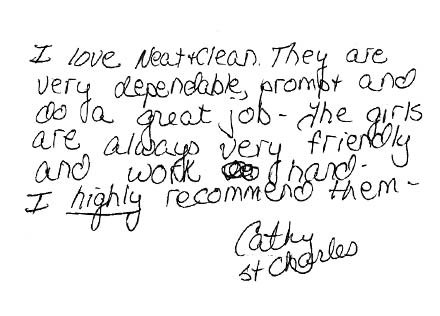 I love Neat+Clean. They are
very dependable, prompt and
do a great job - The girls
are always very friendly
and work hard -
I highly recommend them -
Cathy
St Charles